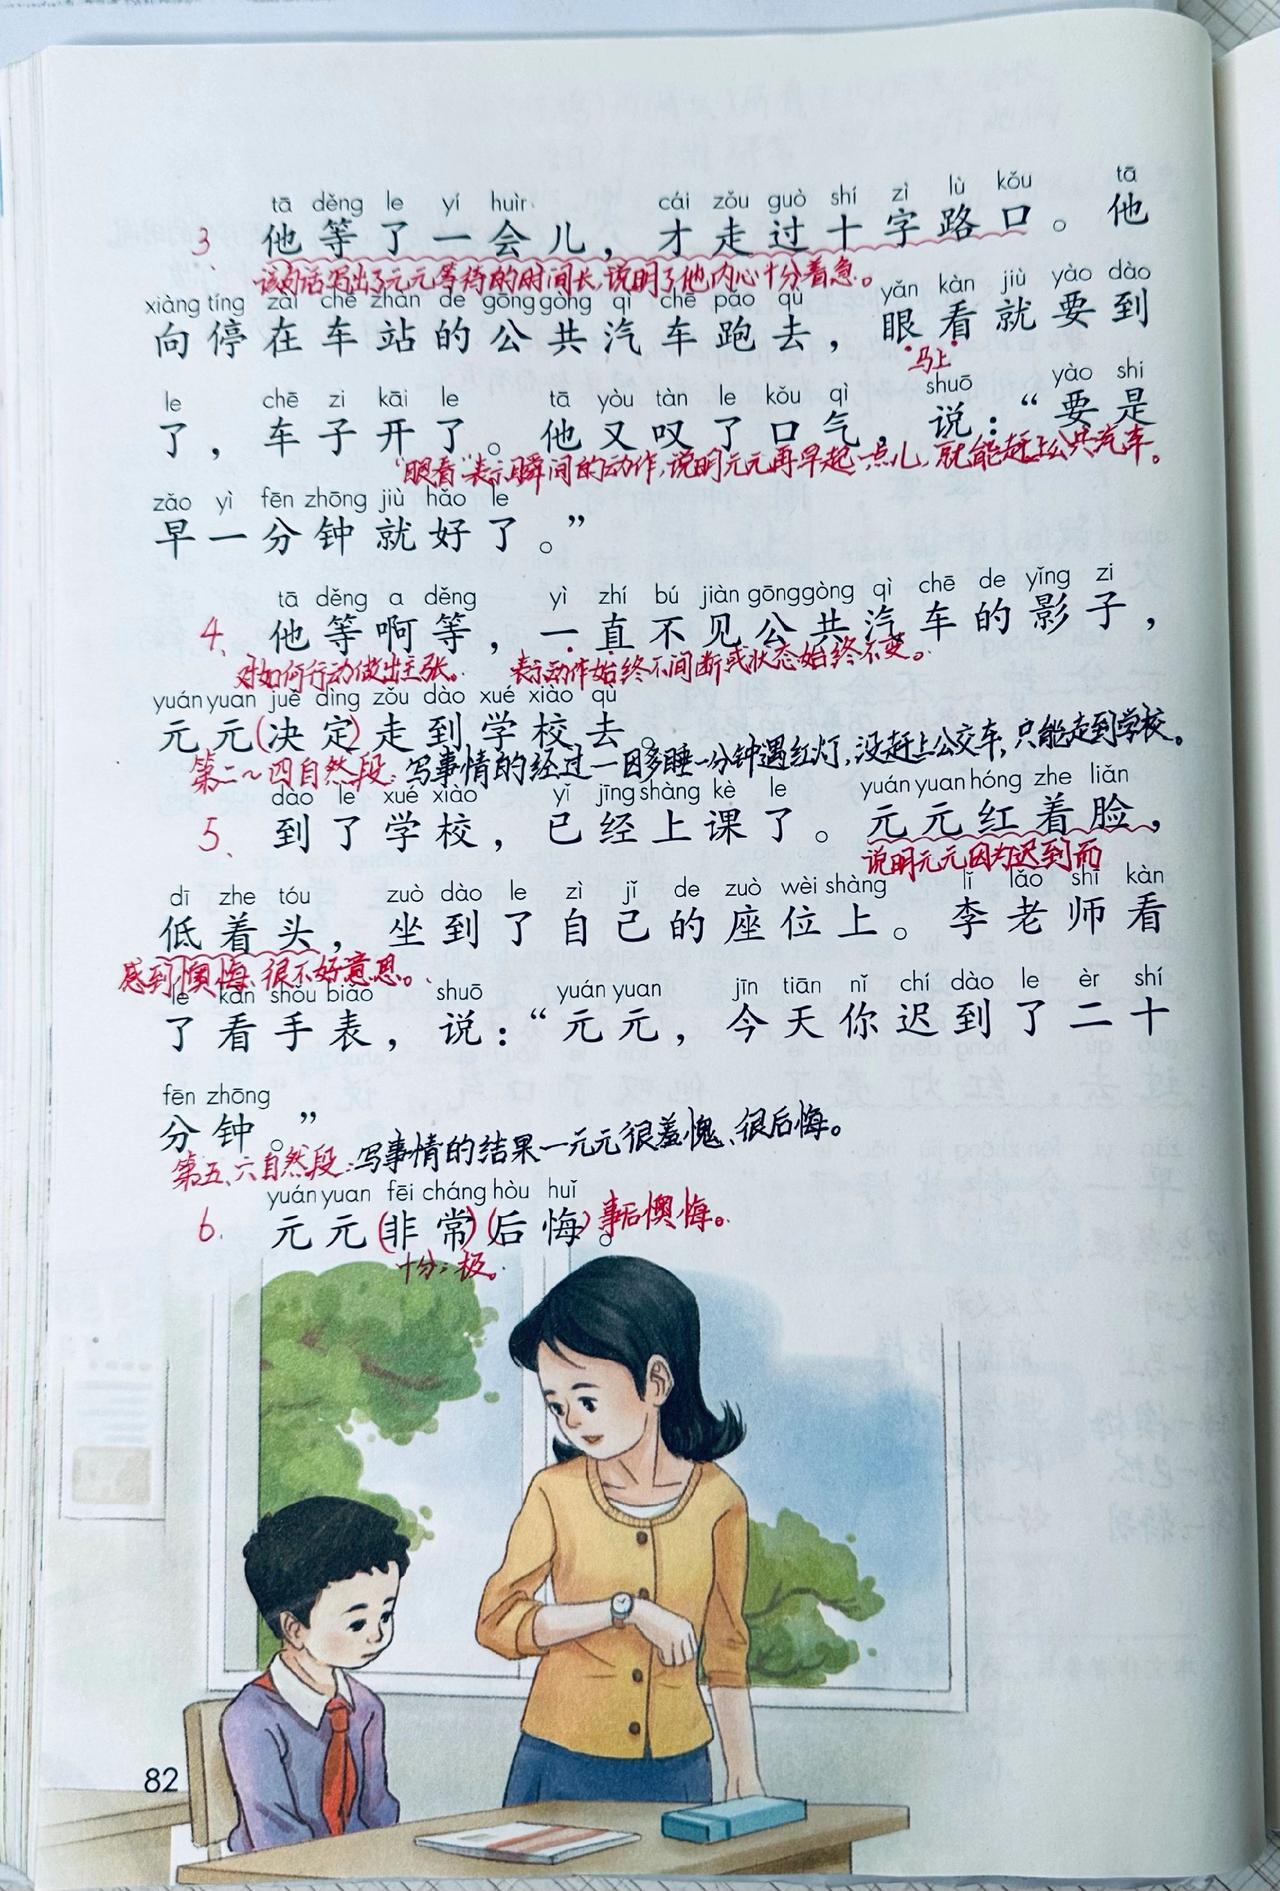 tā děng le yí huìr cái zǒu guò shí zì lù kǒu tā
3、 他等了一会儿，才走过十字路口。他
该句话写出了元元等待的时间长，说明了他内心十分着急。
xiàng tíng zài chē zhàn de gōng gòng qì chē pǎo qù yǎn kàn jiù yào dào
向停在车站的公共汽车跑去，眼看就要到
马上
le chē zi kāi le tā yòu tàn le kǒu qì shuō yào shi
了，车子开了。他又叹了口气，说：“要是
“眼看”表示瞬间的动作，说明元元再早起一点儿，就能赶上公共汽车。
zǎo yì fēn zhōng jiù hǎo le
早一分钟就好了。”
tā děng a děng yì zhí bú jiàn gōng gòng qì chē de yǐng zi
4、 他等啊等，一直不见公共汽车的影子，
对如何行动做出主张。 表示动作始终不间断或状态始终不变。
yuán yuan jué dìng zǒu dào xué xiào qù
元元(决定)走到学校去。
第二～四自然段：写事情的经过—因多睡一分钟遇红灯，没赶上公交车，只能走到学校。
dào le xué xiào yǐ jīng shàng kè le yuán yuan hóng zhe liǎn
5、 到了学校，已经上课了。元元红着脸，
说明元元因为迟到而
dī zhe tóu zuò dào le zì jǐ de zuò wèi shàng lǐ lǎo shī kàn
低着头，坐到了自己的座位上。李老师看
感到懊悔、很不好意思。
le kàn shǒu biǎo shuō yuán yuan jīn tiān nǐ chí dào le èr shí
了看手表，说：“元元，今天你迟到了二十
fēn zhōng
分钟。”
第五、六自然段：写事情的结果—元元很羞愧、很后悔。
yuán yuan fēi cháng hòu huǐ
6. 元元(非常)(后悔)。事后懊悔。
十分；极。
82